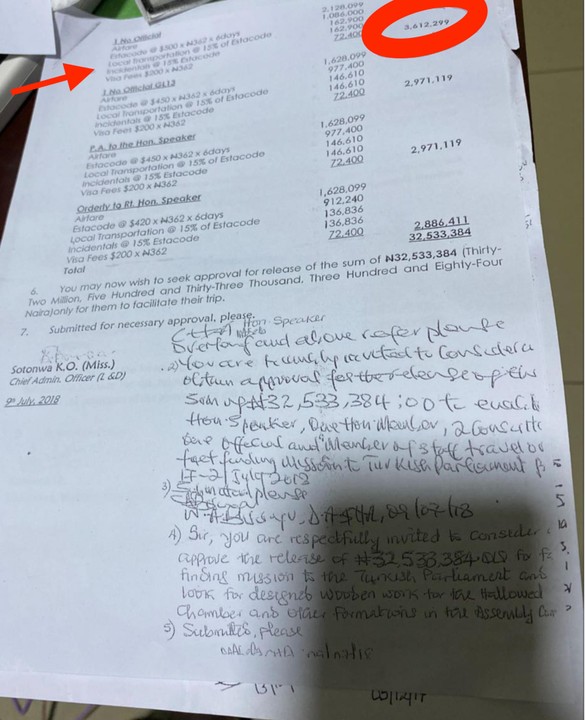 1 No Official
Airfare 2,128,099
Estacode @ $500 x ₦362 x 6days 1,086,000
Local Transportation @ 15% of Estacode 162,900
Incidentals @ 15% Estacode 162,900
Visa Fees $200 x ₦362 72,400 3,612,299
1 No Official GL13
Airfare 1,628,099
Estacode @ $450 x ₦362 x 6days 977,400
Local Transportation @ 15% of Estacode 146,610
Incidentals @ 15% Estacode 146,610
Visa Fees $200 x ₦362 72,400 2,971,119
P.A. to the Hon. Speaker
Airfare 1,628,099
Estacode @ $450 x ₦362 x 6days 977,400
Local Transportation @ 15% of Estacode 146,610
Incidentals @ 15% Estacode 146,610
Visa Fees $200 x ₦362 72,400 2,971,119
Orderly to Rt. Hon. Speaker
Airfare 1,628,099
Estacode @ $420 x ₦362 x 6days 912,240
Local Transportation @ 15% of Estacode 136,836
Incidentals @ 15% Estacode 136,836
Visa Fees $200 x ₦362 72,400 2,886,411
Total 32,533,384
6. You may now wish to seek approval for release of the sum of ₦32,533,384 (Thirty-
Two Million, Five Hundred and Thirty-Three Thousand, Three Hundred and Eighty-Four
Naira)only for them to facilitate their trip.
7. Submitted for necessary approval, please.
Sotonwa K.O. (Miss.)
Chief Admin. Officer (L &D)
9th July, 2018
Hon Speaker
and above refer please
2) You are to consider
obtain approval for the release of the
Sum of ₦32,533,384:00 to
Hon. Speaker, One Hon. Member, 2
One Official and Member of staff travel on
fact finding mission to Turkish Parliament
July 2018
3) please
4) Sir, you are respectfully invited to consider
approve the release of ₦32,533,384 for
finding mission to the Turkish Parliament and
look for designed wooden work for the Hallowed
Chamber and other formations in the Assembly
5) Submitted, please